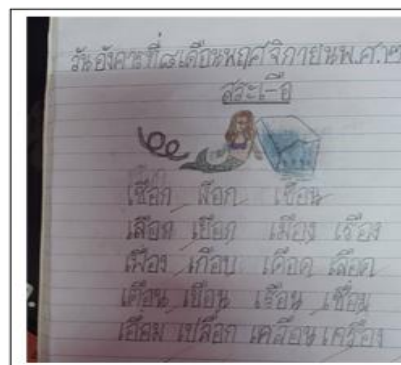 วันอังคารที่๘เดือนพฤศจิกายนพ.ศ.๒
สระเ-ือ
เชือก เงือก เขื่อน
เลือก เยือก เมือง เรือง
เฟือง เกือบ เดือด เลือด
เดือน เยือน เรือน เชื่อม
เอือม เปลือก เคลื่อน เครื่อง